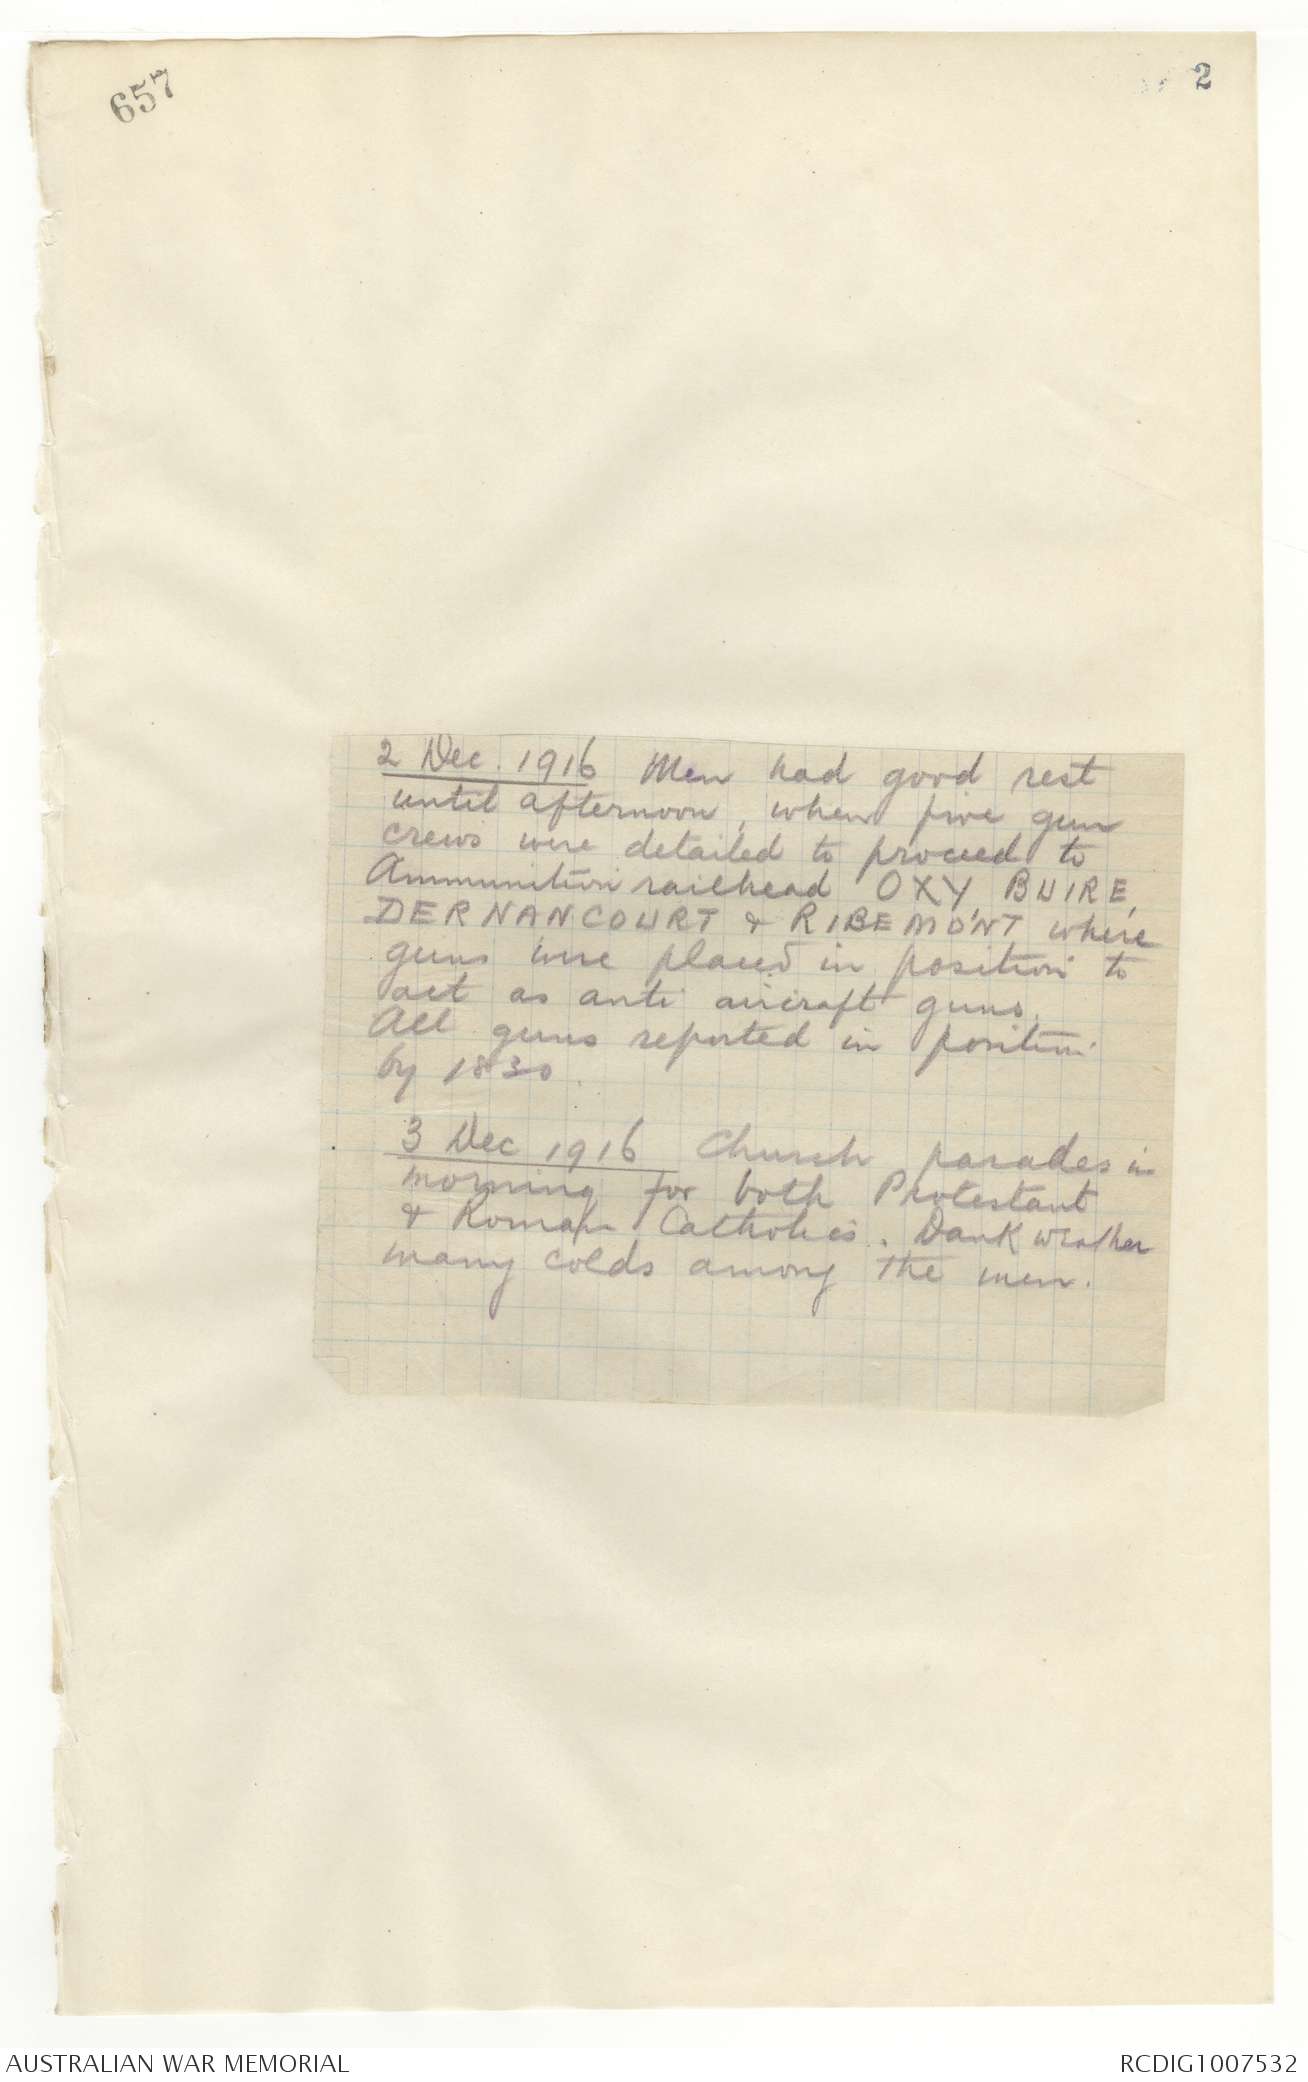 657
2
2 Dec. 1916 Men had good rest
until afternoon, when five gun
crews were detailed to proceed to
Ammunition railhead OXY BUIRE,
DERNANCOURT & RIBEMONT where
guns were placed in position to
act as anti aircraft guns.
All guns reported in position
by 1830.
3 Dec 1916 Church parades in
morning for both Protestant
& Roman Catholics. Dank weather
many colds among the men.
AUSTRALIAN WAR MEMORIAL
RCDIG1007532